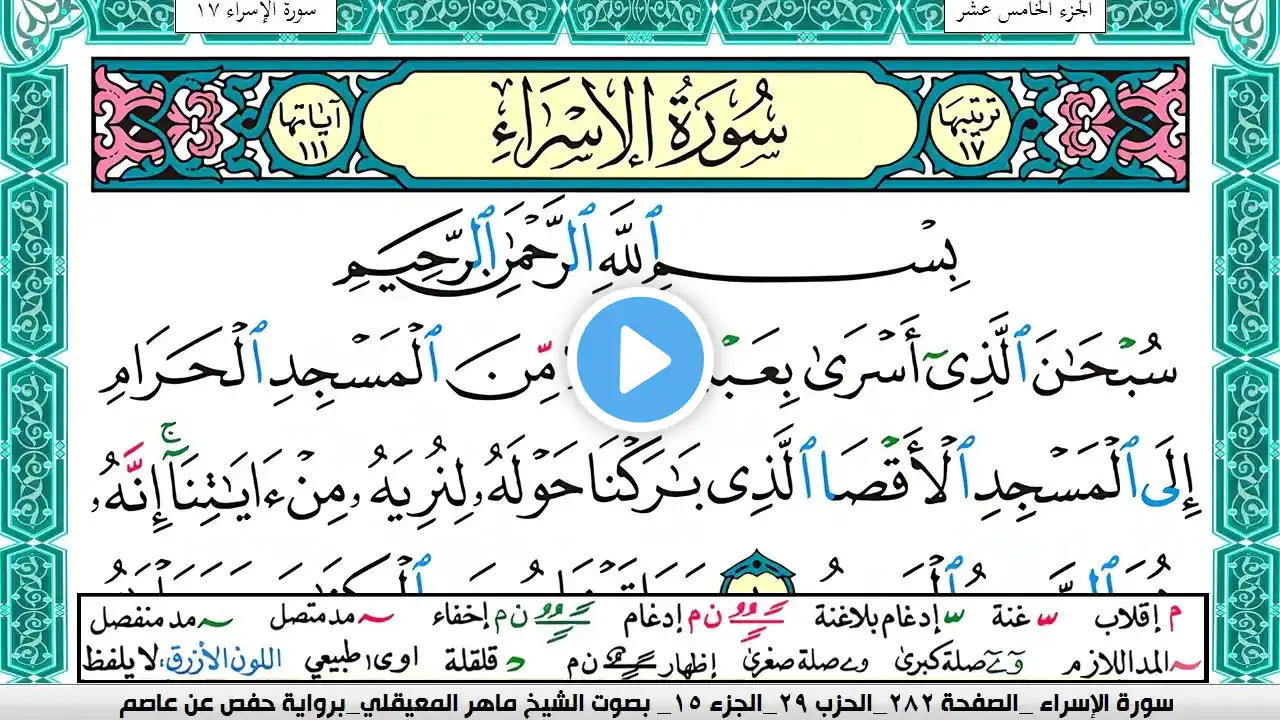 الجزء الخامس عشر
سورة الإسراء ١٧
ترتيبها ١٧
سُورَةُ الإِسْرَاءِ
آياتها ١١١
بِسْمِ ٱللَّهِ ٱلرَّحْمَٰنِ ٱلرَّحِيمِ
سُبْحَٰنَ ٱلَّذِىٓ أَسْرَىٰ مِّنَ ٱلْمَسْجِدِ ٱلْحَرَامِ
إِلَى ٱلْمَسْجِدِ ٱلْأَقْصَا ٱلَّذِى بَٰرَكْنَا حَوْلَهُۥ لِنُرِيَهُۥ مِنْ ءَايَٰتِنَآ ۚ إِنَّهُۥ
م إقلاب غنة إدغام بلاغنة ن م إدغام ن م إخفاء مد متصل مد منفصل
المد اللازم صلة كبرى صلة صغرى إظهار ن م قلقلة اوى طبيعي اللون الأزرق: لا يلفظ
سورة الإسراء _الصفحة ٢٨٢_الحزب ٢٩_الجزء ١٥_ بصوت الشيخ ماهر المعيقلي_برواية حفص عن عاصم